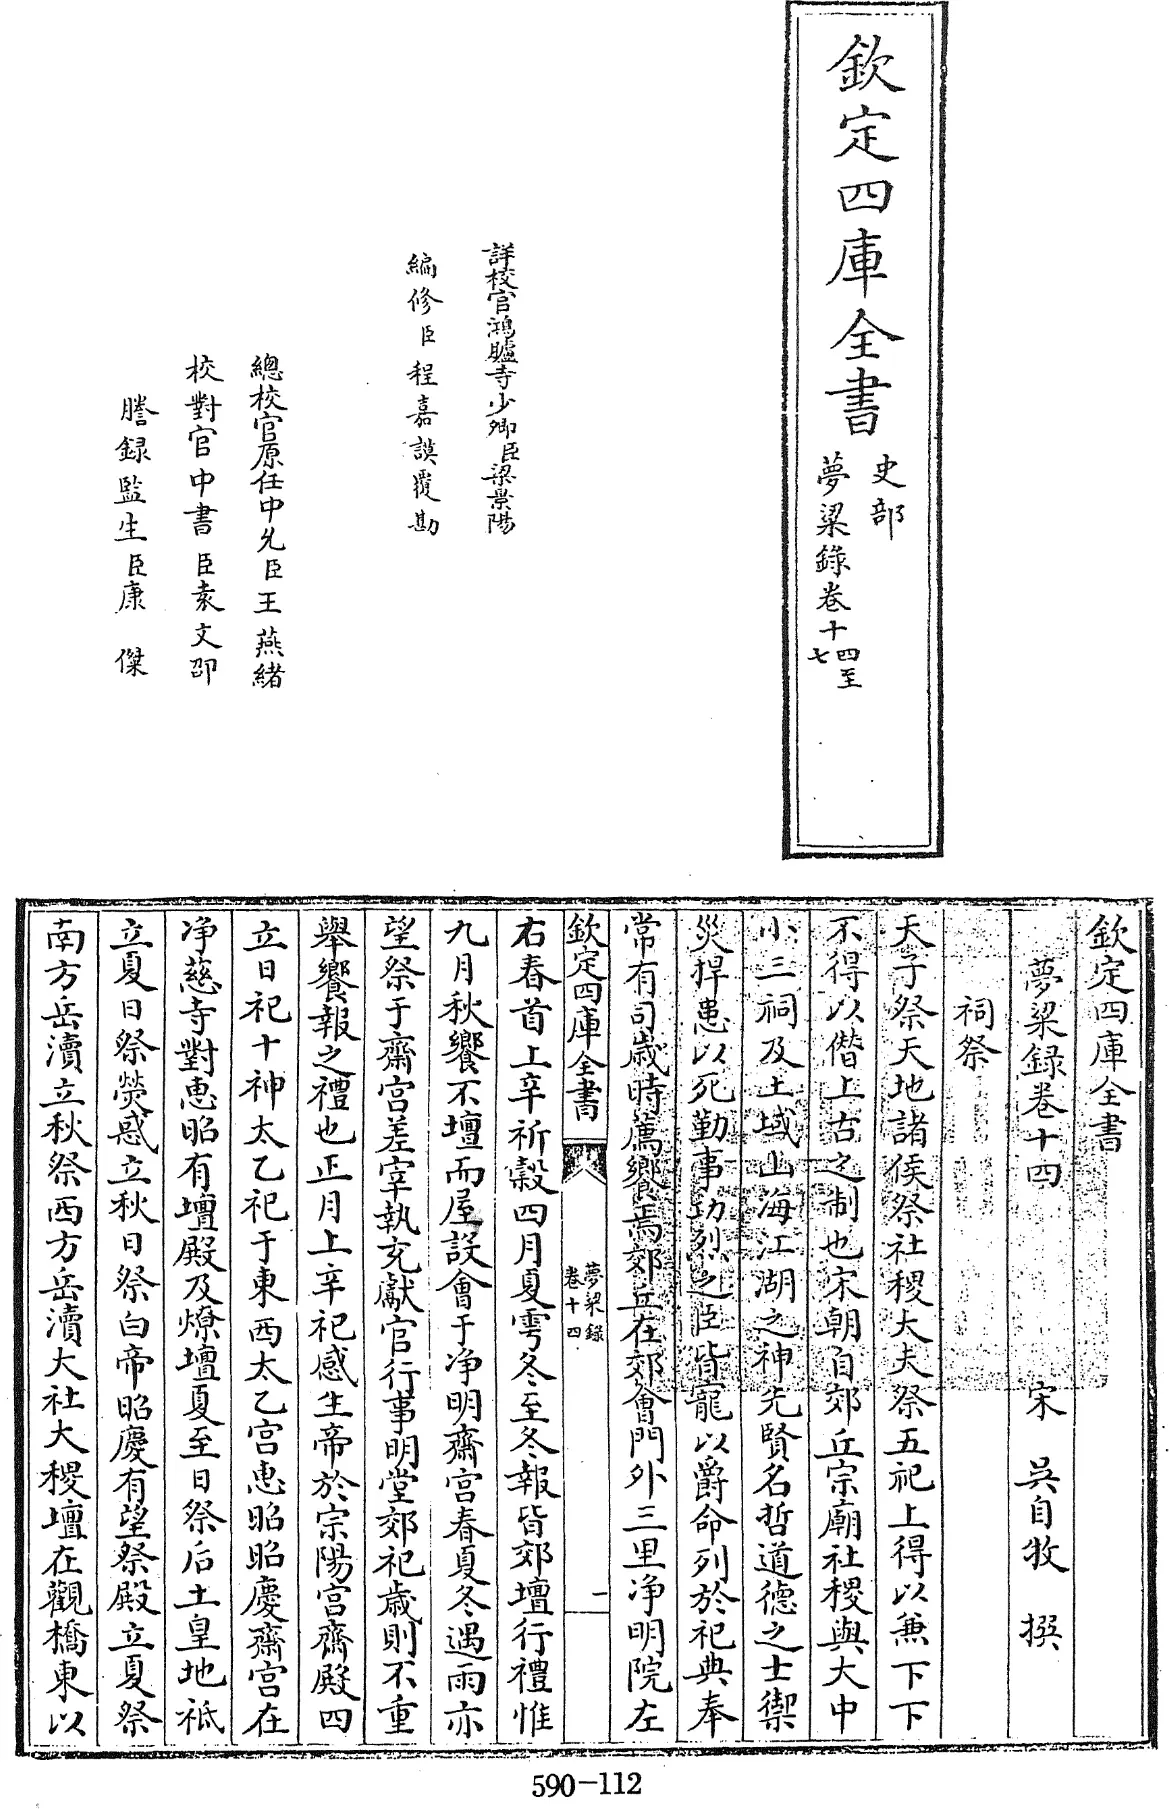 欽定四庫全書
史部
夢粱錄卷十四至七
詳校官鴻臚寺少卿臣梁景陽
編修臣程嘉謨覆勘
總校官原任中允臣王燕緒
校對官中書臣袁文邵
謄録監生臣康傑
欽定四庫全書
夢粱録卷十四
宋 吳自牧 撰
祠祭
天子祭天地諸侯祭社稷大夫祭五祀上得以兼下下
不得以僭上古之制也宋朝自郊丘宗廟社稷與大中
小三祠及土域山海江湖之神先賢名哲道德之士禦
災捍患以死勤事功烈之臣皆寵以爵命列於祀典奉
常有司歲時薦饗焉郊丘在郊會門外三里淨明院左
欽定四庫全書
夢粱錄
卷十四
一
右春首上辛祈穀四月夏雩冬至冬報皆郊壇行禮惟
九月秋饗不壇而屋設會于净明齋宮春夏冬遇雨亦
望祭于齋宮差宰執充獻官行事明堂郊祀歲則不重
舉饗報之禮也正月上辛祀感生帝於宗陽宮齋殿四
立日祀十神太乙祀于東西太乙宮惠昭昭慶齋宮在
净慈寺對惠昭有壇殿及燎壇夏至日祭后土皇地祗
立夏日祭熒惑立秋日祭白帝昭慶有望祭殿立夏祭
南方岳瀆立秋祭西方岳瀆大社大稷壇在觀橋東以
590-112